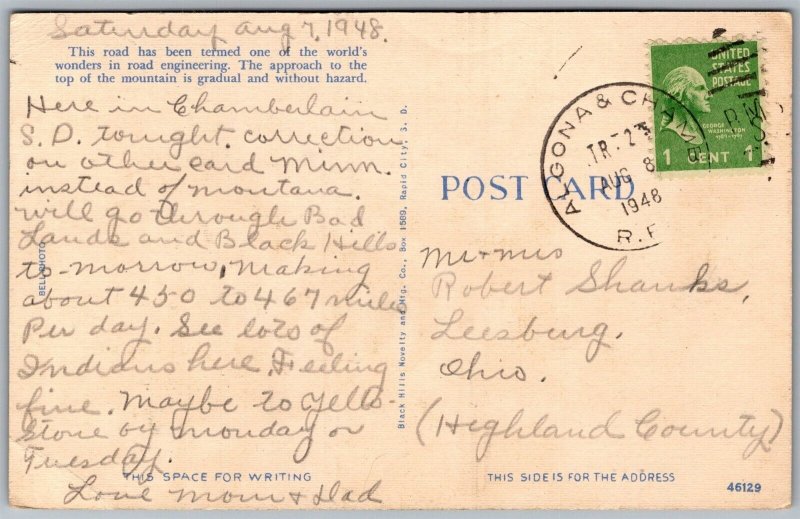 Saturday Aug 7, 1948.
This road has been termed one of the world's
wonders in road engineering. The approach to the
top of the mountain is gradual and without hazard.
Here in Chamberlain
S. D. tonight. correction
on other card Minn.
instead of Montana.
will go through Bad
Lands and Black Hills
to-morrow, making
about 450 to 467 miles
Per day. See lots of
Indians here. Feeling
fine. Maybe to Yellow-
stone by Monday or
Tuesday.
THIS SPACE FOR WRITING
Love Mom + Dad
BELL PHOTO
Black Hills Novelty and Mfg. Co., Box 1589, Rapid City, S. D.
POST CARD
ALGONA & CHAMB
TR. 23
AUG 8
1948
R. P
UNITED
STATES
POSTAGE
GEORGE
WASHINGTON
1 CENT 1
Mr + Mrs
Robert Shanks,
Leesburg,
Ohio.
(Highland County)
THIS SIDE IS FOR THE ADDRESS
46129